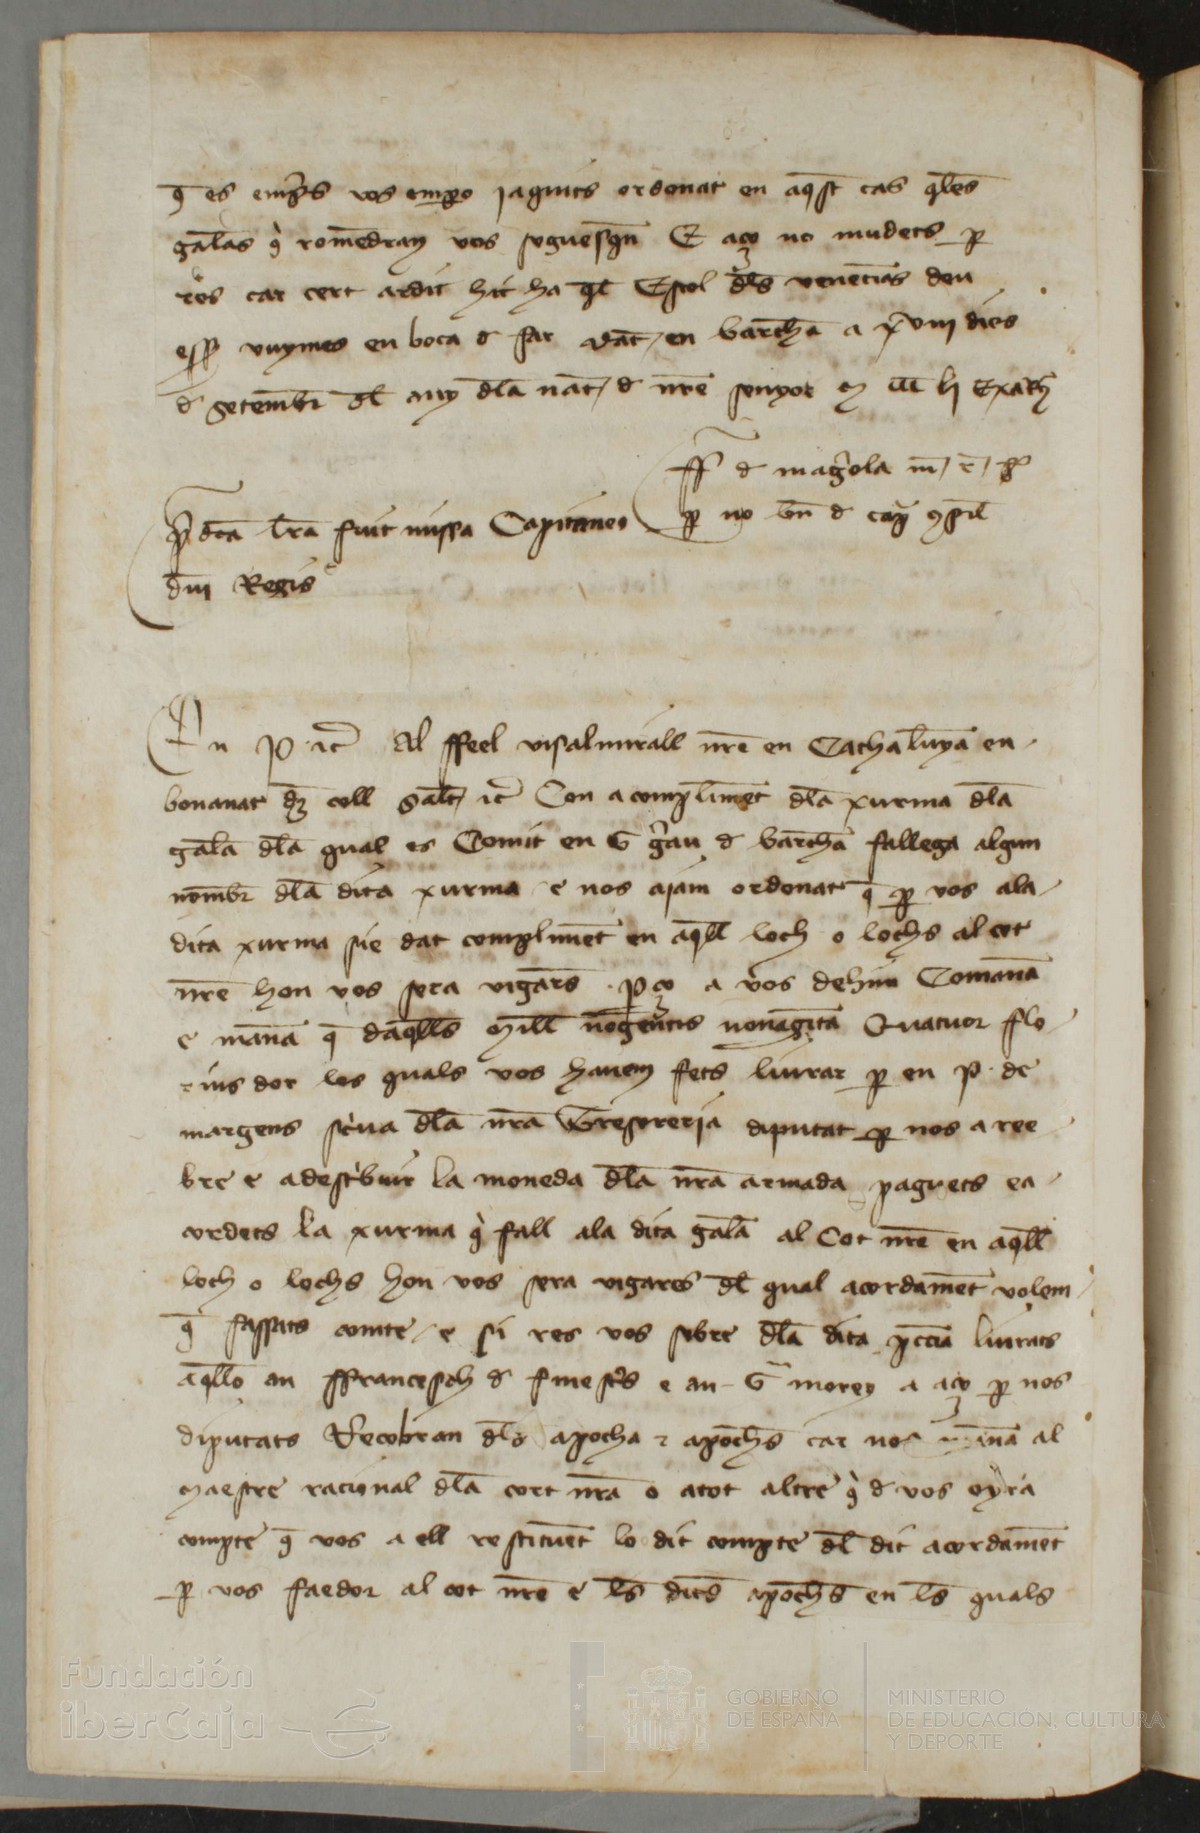 q̄ es emp̄s vos emꝑo jaquits ordenat en aq̄st cas q̄les
gale̅s q̇ romēdran vos seguesq̄n E aço no mudets ꝑ
res car cert ardit hic ha q̄l Estol d̄ls venecians deu
esser vuymes en boca d far dat̄ en barch̄a a xviii dies
d setembr̄ d̄l any d̄la nat̄ d nr̄e senyor M ccc li Exatr̄
ff d magrola
p̄dc̄a lr̄a fuit missa Capitaneo ꝑ no
dn̄i Regis
En P. etc̄ Al ffeel visalmirall nr̄e en Cathalunya en
bonanat dez coll salt̄ etc̄ Con a compliment d̄la xurma d̄la
galea d̄la qual es Comit en G grau d barch̄a fallega algun
nombr̄ d̄la dita xurma e nos ajam ordenat q̄ ꝑ vos ala
dita xurma sie dat compliment en aq̄ll loch o lochs al cot
nr̄e hon vos sera vigars. ꝑço a vos dehim Comanā
e manā q̄ daq̄lls Mill nōgentis nonaginta Quatuor flo
rins dor los quals vos havem fets liurar ꝑ en P. de
margens sc̀va d̄la nr̄a Tresoreria diputat ꝑ nos a ree
bre e a destr̀buir la moneda d̄la nr̄a armada paguets e a
cordets la xurma q̇ fall ala dita galea al Cot nr̄e en aq̄ll
loch o lochs hon vos sera vigares d̄l qual acordament volem
q̄ fassats comte e si res vos sobre d̄la dita pc̄cia liurats
aq̄llo an ffrancesch d finestr̄s e an G morey a aço ꝑ nos
diputats Recobran d̄ls apocha e apoch̄s car nos manā al
Maestre racional d̄la cort nr̄a o atot altre q̇ d vos oyra
compte q̄ vos a ell restituent lo dit compte d̄l dit acordament
ꝑ vos faedor al cot nr̄e e l̄s dit̄s apoch̄s en l̄s quals
Fundación
iberCaja
GOBIERNO
DE ESPAÑA
MINISTERIO
DE EDUCACIÓN, CULTURA
Y DEPORTE